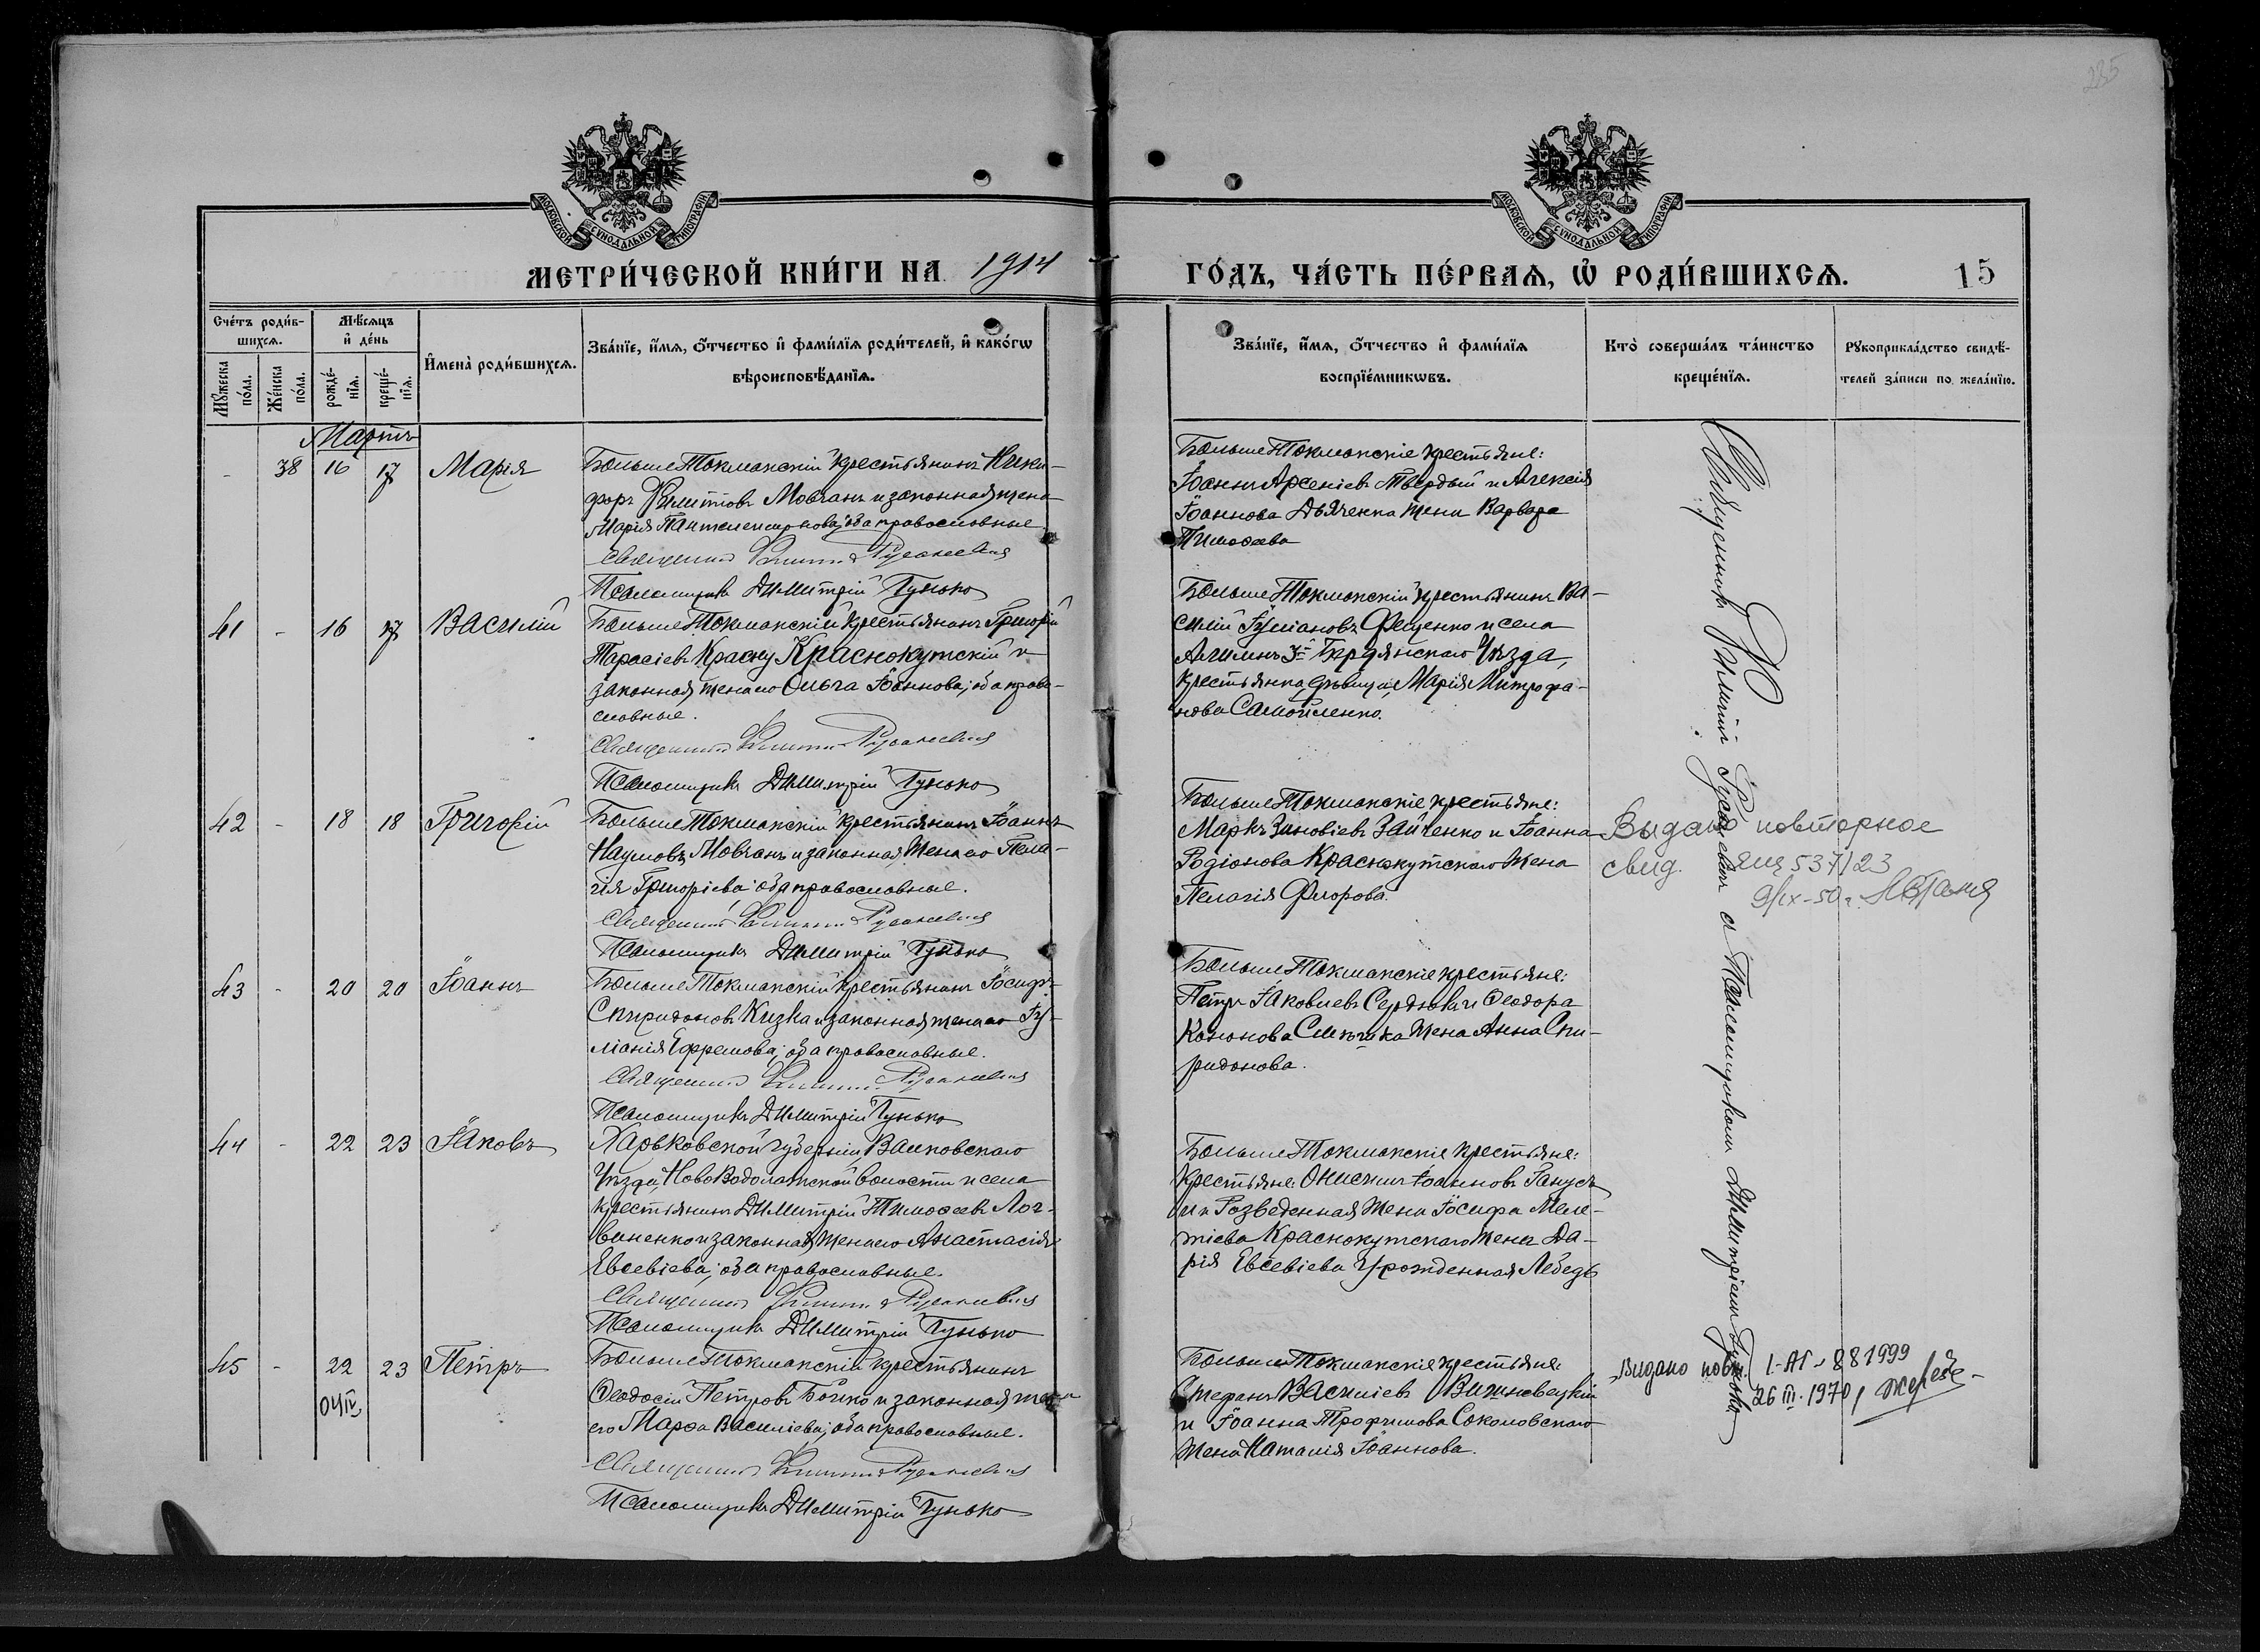 235
МОСКОВСКОЙ СѴНОДАЛЬНОЙ ТИПОГРАФІИ
МОСКОВСКОЙ СѴНОДАЛЬНОЙ ТИПОГРАФІИ
МЕТРИ́ЧЕСКОЙ КНИ́ГИ НА 1914
ГО́ДЪ, ЧА́СТЬ ПЕ́РВАЯ, Ѡ҆ РОДИ́ВШИХСЯ.
15
Сче́тъ роди́в-
шихся.
Мѣ́сяцъ
и҆ де́нь
Мꙋ́жеска
по́ла.
Же́нска
по́ла.
рожде́-
нїя.
креще́-
нїя.
И҆мена̀ роди́вшихся.
Зва́нїе, и҆́мя, ѻ҆́тчество и҆ фами́лїя роди́телей, и҆ како́гѡ
вѣроисповѣ́данїя.
Зва́нїе, и҆́мя, ѻ҆́тчество и҆ фами́лїя
воспрїе́мникѡвъ.
Кто̀ соверша́лъ та́инство
креще́нїя.
Рꙋкоприкла́дство свидѣ́-
телей за́писи по жела́нїю.
Мартъ
- 38 16 17 Марія
Больше Токмакскій крестьянинъ Ники-
форъ Филиповъ Мовчанъ и законная жена
Марія Пантелеимонова; оба православные
Священникъ Филиппъ Русаневичъ
Псаломщикъ Димитрій Гунько
Больше Токмакскіе крестьяне:
Іоаннъ Арсеніевъ Твердый и Алексія
Іоаннова Дьяченка жена Варвара
Тимоѳеева
41 - 16 17 Василій
Больше Токмакскій крестьянинъ Григорій
Тарасіевъ Красну Краснокутскій и
законная жена его Ольга Іоаннова; оба право-
славные.
Священникъ Филиппъ Русаневичъ
Псаломщикъ Димитрій Гунько
Больше Токмакскій крестьянинъ Ва-
силій Іуліановъ Фещенко и села
Бердянскаго Уѣзда,
крестьянка, дѣвица, Марія Митрофа-
нова Самойленко.
42 - 18 18 Григорій
Больше Токмакскій крестьянинъ Іоаннъ
Наумовъ Мовчанъ и законная жена его Пела-
гія Григоріева; оба православные.
Священникъ Филиппъ Русаневичъ
Псаломщикъ Димитрій Гунько
Больше Токмакскіе крестьяне:
Маркъ Зиновіевъ Зайченко и Іоанна
Родіонова Краснокутскаго жена
Пелагія Флорова.
Выдано повторное
свид. ЯЩ 537123
9/IX-50 г.
43 - 20 20 Іоаннъ
Больше Токмакскій крестьянинъ Іосифъ
Спиридоновъ Кизка и законная жена его Іу-
ліанія Ефремова; оба православные.
Священникъ Филиппъ Русаневичъ
Псаломщикъ Димитрій Гунько
Больше Токмакскіе крестьяне:
Петръ Іаковлевъ Сердюкъ и Ѳеодора
Кононова жена Анна Спи-
ридонова.
44 - 22 23 Іаковъ
Харьковской губерніи, Валковскаго
Уѣзда, Ново Водолажской волости и села
крестьянинъ Димитрій Тимоѳеевъ Лог-
виненко и законная жена его Анастасія
Евсевіева; оба православные.
Священникъ Филиппъ Русаневичъ
Псаломщикъ Димитрій Гунько
Больше Токмакскіе крестьяне:
крестьяне: Онисимъ Іоанновъ Ганусъ
и Разведенная жена Іосифа Меле-
тіева Краснокутскаго жена Да-
рія Евсевіева Урожденная Лебедь
45 - 22 23 Петръ
04IV
Больше Токмакскій крестьянинъ
Ѳеодосій Петровъ Бойко и законная жена
его Марѳа Василіева; оба православные.
Священникъ Филиппъ Русаневичъ
Псаломщикъ Димитрій Гунько
Больше Токмакскіе крестьяне:
Стефанъ Василіевъ Вишневецкій
и Іоанна Трофимова Соколовскаго
жена Наталія Іоаннова.
Видано повт. I-АП 881999
26 III. 1970
Священникъ Филиппъ Русаневичъ съ Псаломщикомъ Димитріемъ Гунько